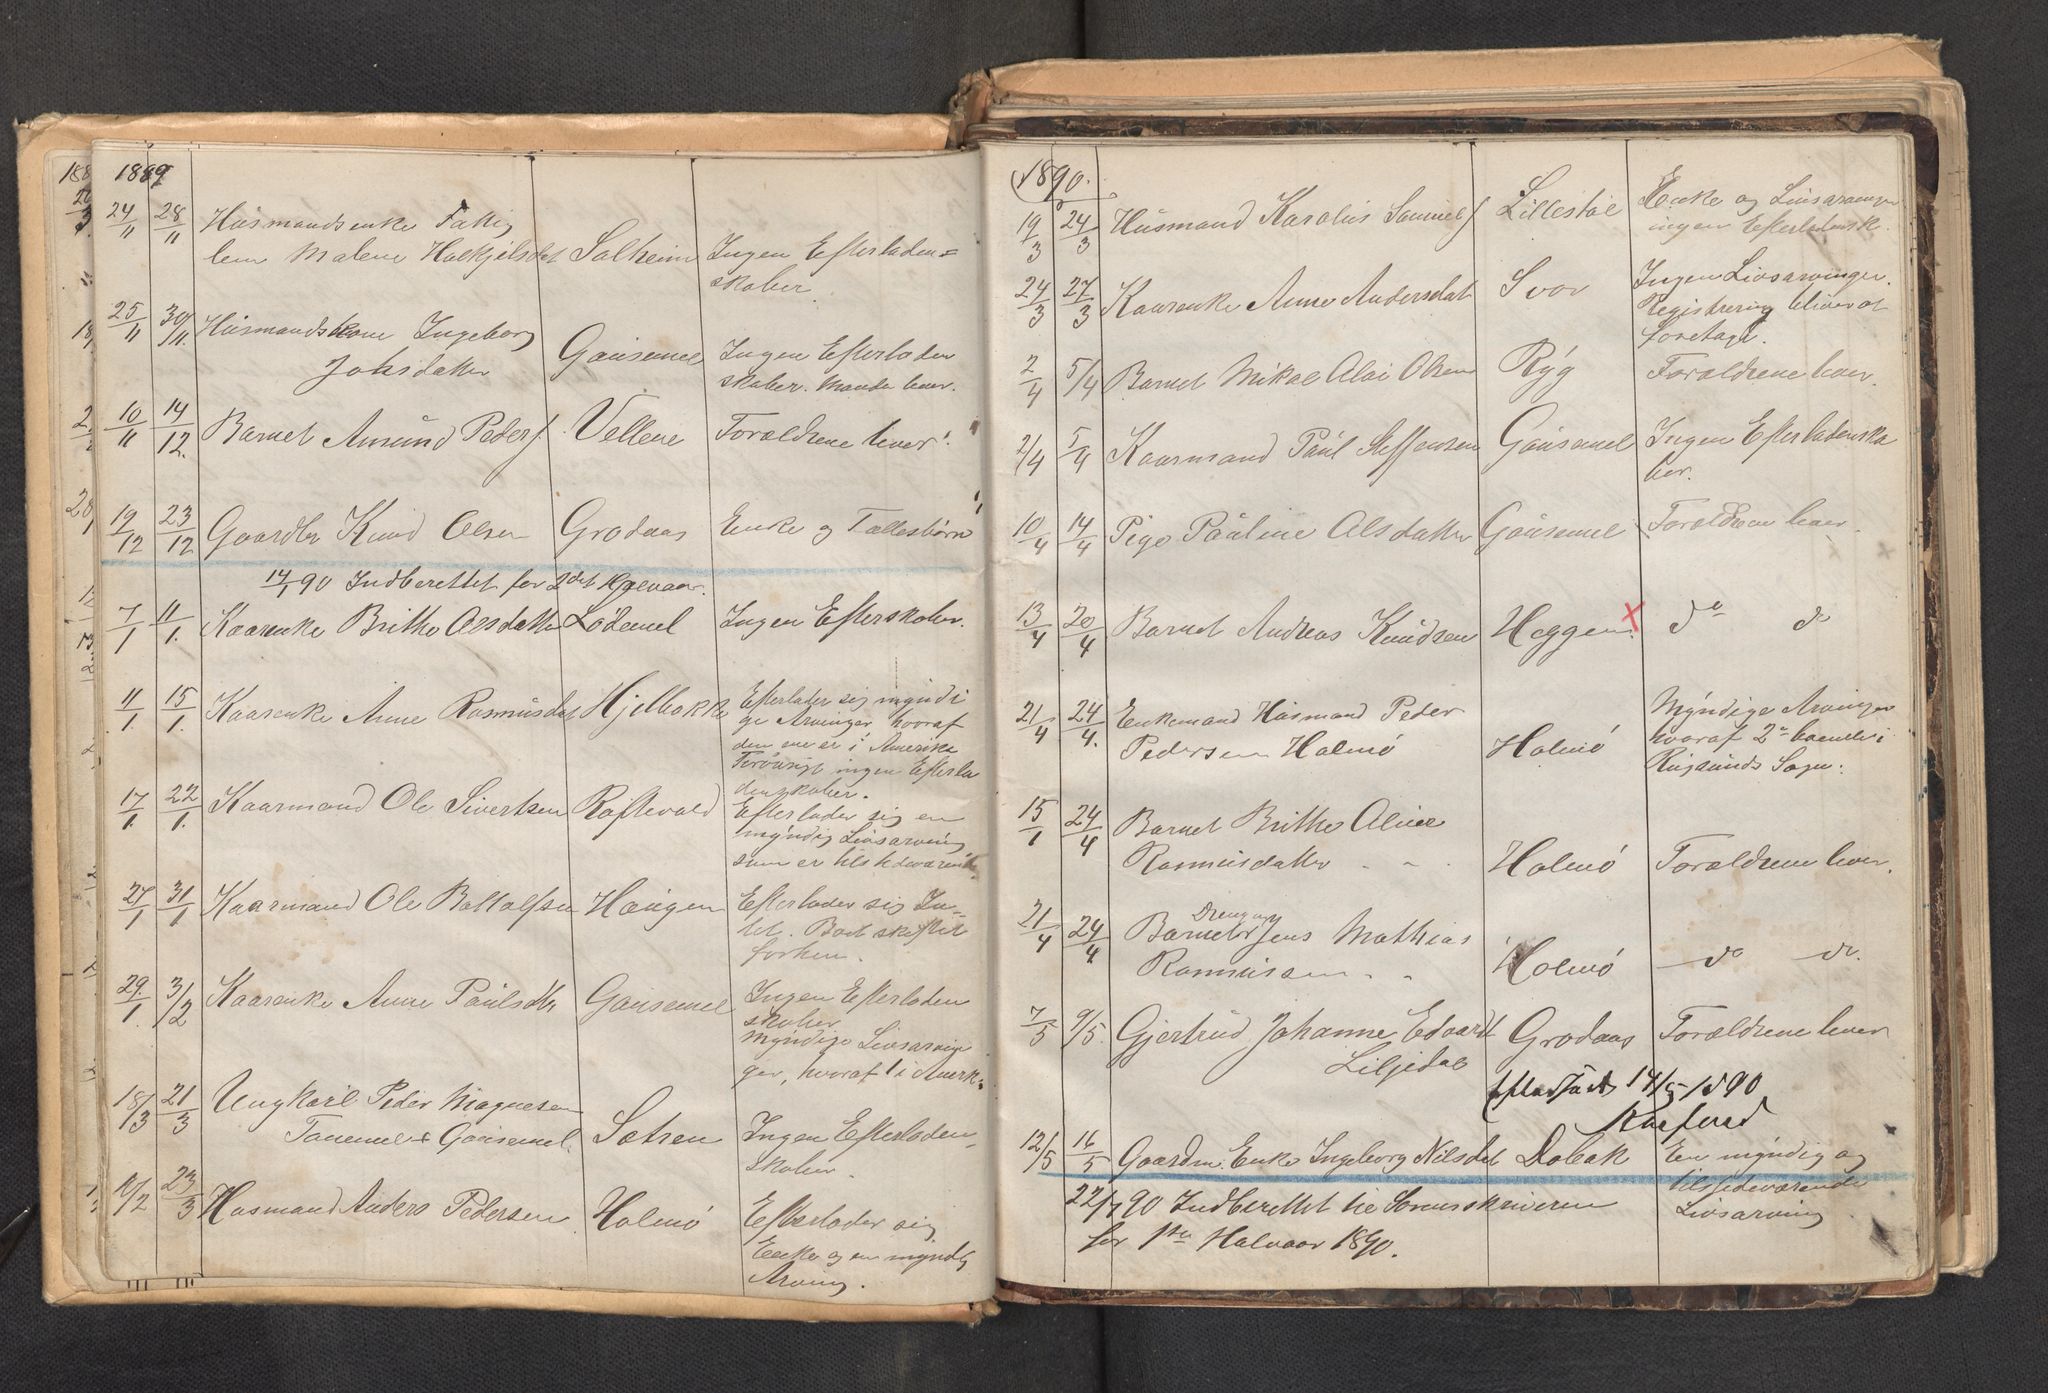 1889
24/11 28/11 Husmandsenke Fattig
lem Malene Halkjelsdat Solheim Ingen Efterladen=
skaber.
25/11 30/11 Husmandskone Ingeborg
Johsdatter Gausemel Ingen Efterladen
skaber. Mande lever.
10/11 14/12 Barnet Amund Peders. Vellene Forældrene lever.
19/12 23/12 Gaardbr Knud Olsen Grodaas Enke og Fællesbørn
14/1 90 Indberettet for 2det Halvaar.
7/1 11/1 Kaarenke Brithe Olsdatter Lødemel Ingen Efterskaber.
11/1 15/1 Kaarenke Anne Rasmusdat Hjelbakke Efterlader sig myndi
ge Arvinger, hvoraf
den ene er i Amerika
Forøvrigt ingen Efterla
denskaber.
17/1 22/1 Kaarmand Ole Sivertsen Raftevold Efterlader sig en
myndig Livsarving
som er tilstedeværende
27/1 31/1 Kaarmand Ole Bottolfsen Haugen Efterlader sig In-
tet. Boet skiftet
forhen.
29/1 3/2 Kaarenke Anne Paulsdtr Gausemel Ingen Efterladen
skaber
Myndige Livsarvin
ger, hvoraf 1 i Amerk.
18/3 21/3 Ungkarl Peder Magnesen
Tonemel Gausemel Sætren Ingen Efterladen-
skaber
23/3 Husmand Anders Pedersen Holmø Efterlader sig
Enke og en myndig
Arving.
1890.
19/3 24/3 Husmand Karolus Samuels. Lillestøl Enke og Livsarvinger
ingen Efterladensk.
24/3 27/3 Kaarenke Anne Andersdat Svor Ingen Livsarvinger.
Registrering bliver at
foretage.
2/4 5/4 Barnet Mikal Olai Olsen Ryg Forældrene lever.
2/4 5/4 Kaarmand Paul Steffensen Gausemel Ingen Efterladenska
ber.
10/4 14/4 Pige Pauline Olsdatter Gausemel Forældrene lever.
13/4 20/4 Barnet Andreas Knudsen Heggen. x do do
21/4 24/4 Enkemand Husmand Peder
Pedersen Holmø Holmø Myndige Arvinger
hvoraf 2 boende i
Rugsunds Sogn.
15/1 24/4 Barnet Brithe Oline
Rasmusdatter Holmø Forældrene lever.
21/4 24/4 Barnet Jens Mathias
Rasmussen Holmø do do.
7/5 9/5 Gjertrud Johanne Edvardt
Liljedal Grodaas Forældrene lever
14/5 1890
12/5 16/5 Gaardm. Enke Ingeborg Nilsdat Dolak En myndig og
tilstedeværende
Livsarving
22/7 90 Indberettet til Sorenskriveren
for 1ste Halvaar 1890.